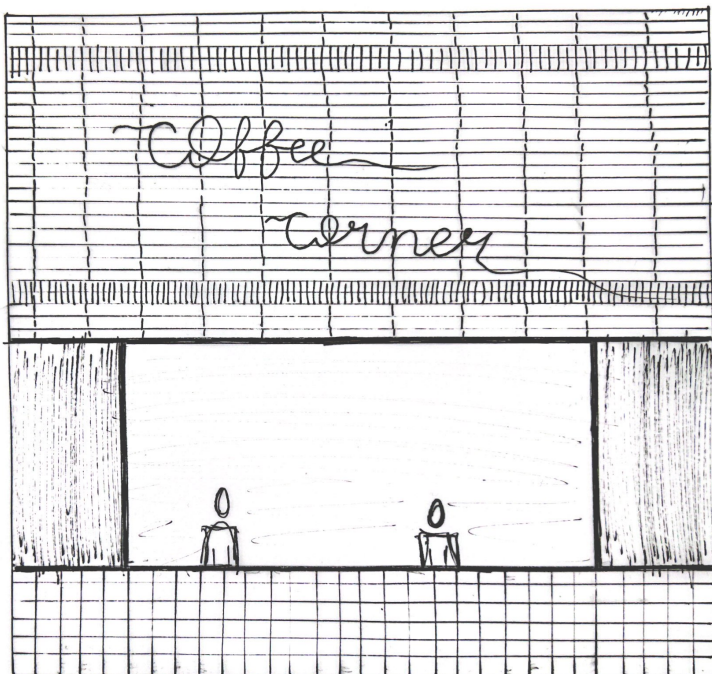 Coffee
Corner